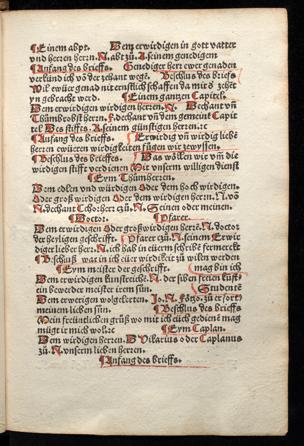 ¶Einem abpt. Dem erwirdigen in gott vatter
vnd herren herrn. N. abt zů. N. seinem genedigem
¶Anfang des brieffs. Genediger herr ewer genaden
verkünd ich vō der zehant wegē. ¶Beschlus des briefs
Wil ewer genad mit entlich schaffen da mit d zehēt
yn gebracht werd. ¶Einem gantzen Capitel.
Dem erwirdigen wirdigen herren. N. Dechant vñ
Thůmbrobst herrn. k. dechant vñ dem gemeint Capit
tel Des stiftes. N. seinem günstigen herren.ꝛc
¶Anfang des brieffs. Erwirdig vñ wirdig liebē
herren ewüeren wirdigkeiten fügen wir zewyssen.
¶Beschlus des brieffes. Das wöllen wir vm die
wirdigen stifft verdienen Mit vnserm willigen dienst
¶Eym Thůmherren.
Dem edlen vnd würdigen Oder dem hoch wirdigen.
oder groß wirdigen Oder dem wirdigen herrn N. vō
N. dechant Chorherr czů. N. Seinen oder meinen.
¶Doctor. ¶Pfarer.
Dem erwirdigē Oder großwirdigen herrē. N. doctor
der heyligen geschrifft. Pfarrer zů. N. seinem Erwir
diger lieber herr. N. ich hab in eüerm schreibē fermerckt
¶Beschluß was in ich eüer wirdikeit zů wilen werden
¶Eym meister der geschrifft. mag bin ich
Dem erwirdigen kunstreichē. N. der siben freien künst
ein bewerter dem meister im sün. ¶Studentē
Dem erwerigen wolgelertten. Jo. N. Götzo. zů erfort
meinem lieben sün. ¶Beschlus des brieffs
Mein freüntlichen grůß wo mit ich eüch gedienē mag
mügt ir mich wol.ꝛc ¶Eym Caplan.
Dem würdigen herren. D Vikarius oder Caplanus
zů. N. vnserm lieben herren.
¶Anfang des brieffs.